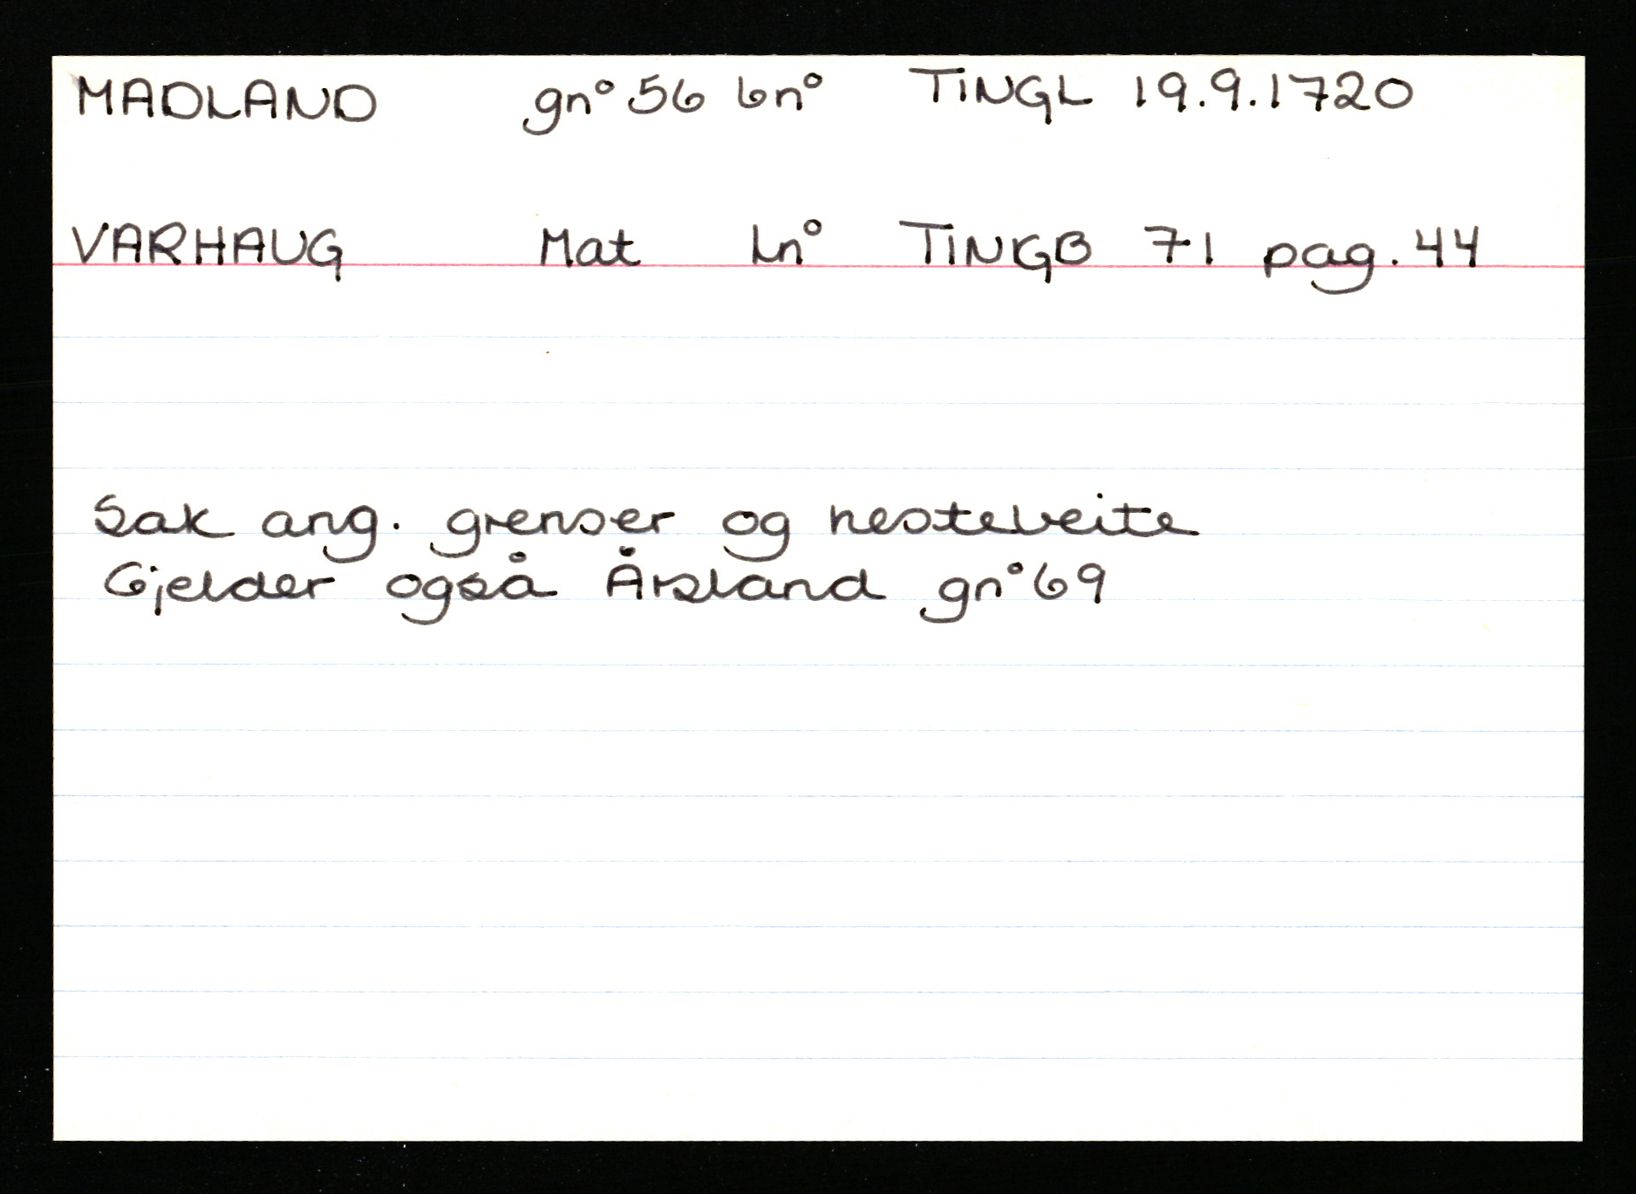 MADLAND gnº 56 bnº TINGL 19.9.1720
VARHAUG Mat Lnº TINGB 71 pag. 44
Sak ang. grenser og hesteveite
Gjelder også Årsland gnº 69